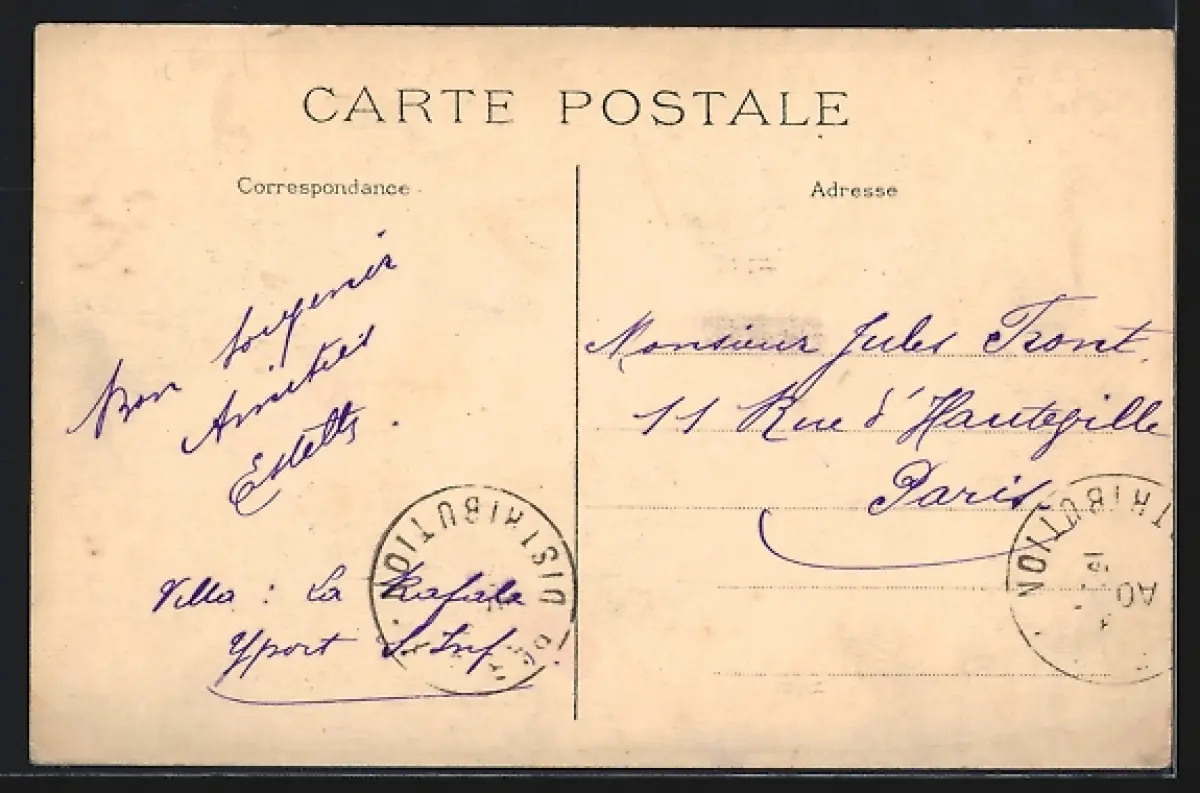 CARTE POSTALE
Correspondance
Adresse
Bon Souvenir
Amitiés
Estelle
Villa : La Rafale
Yport S. Inf.
Monsieur Jules Tront
11 Rue d'Hauteville
Paris
DISTRIBUTION
DISTRIBUTION
AO